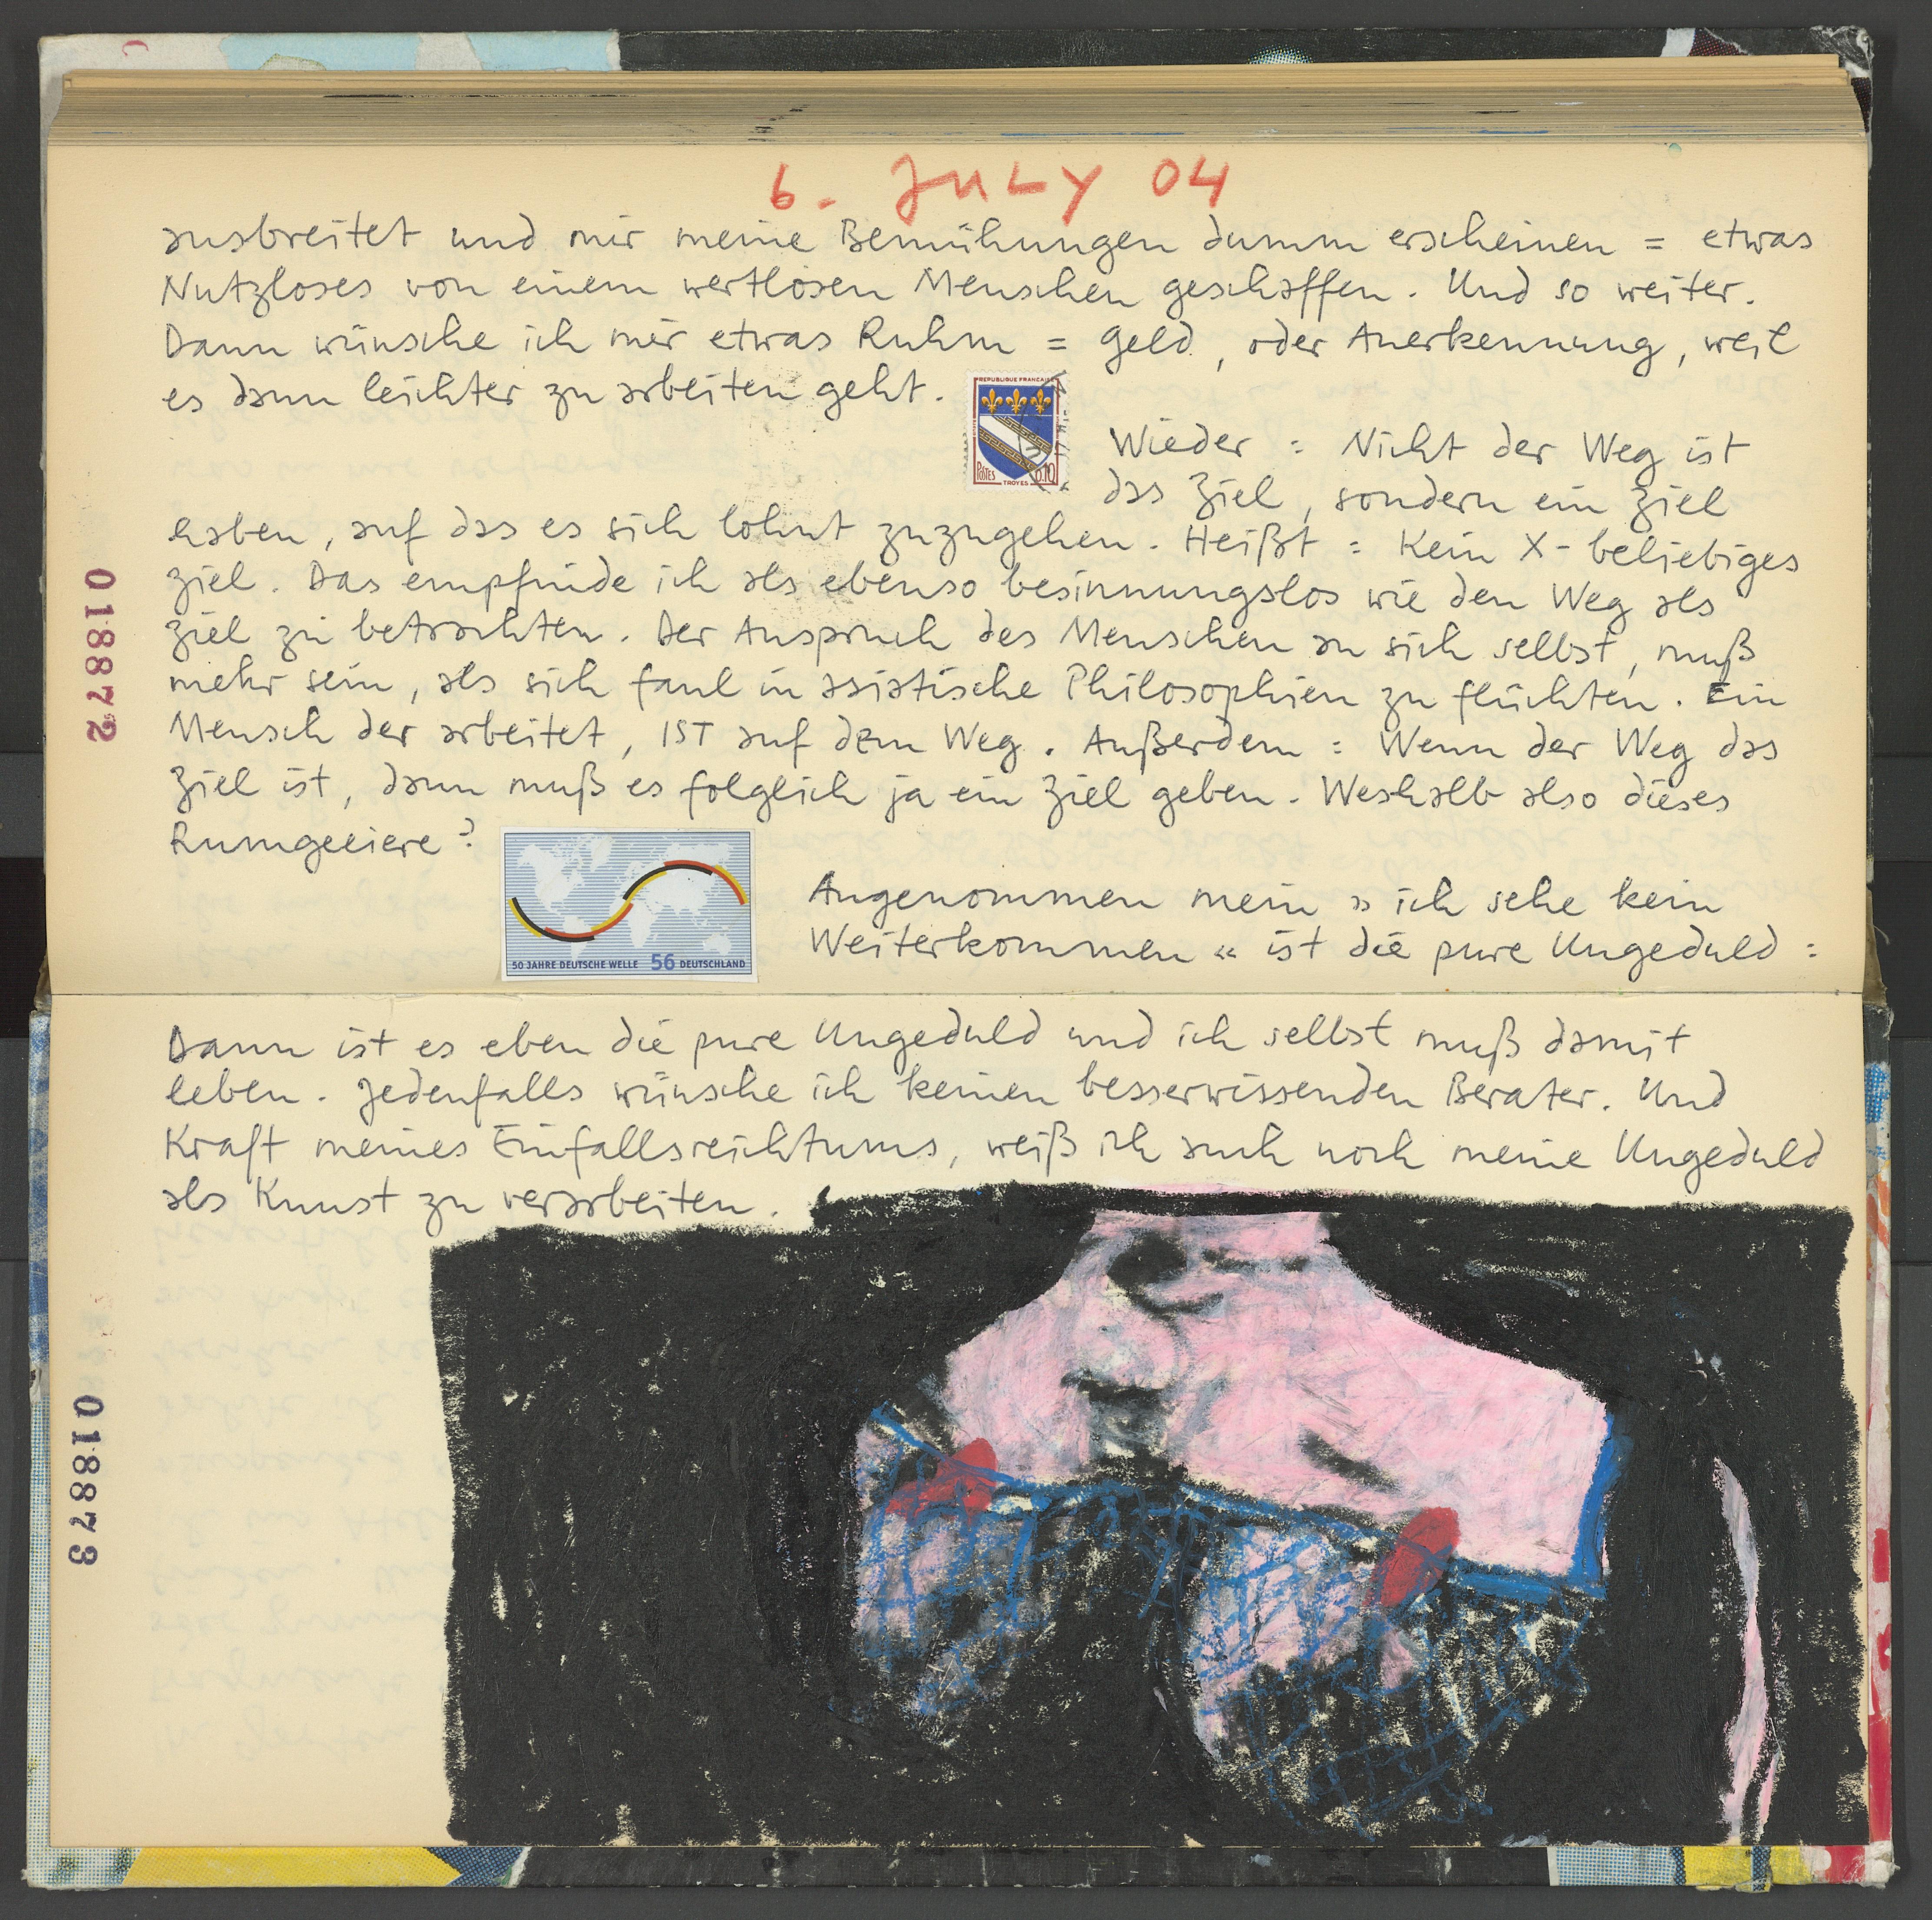 6. JULY 04
ausbreitet und mir meine Bemühungen dumm erscheinen = etwas
Nutzloses von einem wertlosen Menschen geschaffen. Und so weiter.
Dann wünsche ich mir etwas Ruhm = Geld, oder Anerkennung, weil
es dann leichter zu arbeiten geht.
REPUBLIQUE FRANCAISE
POSTES 0,10
TROYES
Wieder : Nicht der Weg ist
das Ziel, sondern ein Ziel
haben, auf das es sich lohnt zuzugehen. Heißt : Kein X-beliebiges
Ziel. Das empfinde ich als ebenso besinnungslos wie den Weg als
Ziel zu betrachten. Der Anspruch des Menschen an sich selbst, muß
mehr sein, als sich faul in asiatische Philosophien zu flüchten. Ein
Mensch der arbeitet, IST auf dem Weg. Außerdem : Wenn der Weg das
Ziel ist, dann muß es folglich ja ein Ziel geben. Weshalb also dieses
Rumgeeiere?
50 JAHRE DEUTSCHE WELLE 56 DEUTSCHLAND
Angenommen mein » ich sehe kein
Weiterkommen « ist die pure Ungeduld :
018872
Dann ist es eben die pure Ungeduld und ich selbst muß damit
leben. Jedenfalls wünsche ich keinen besserwissenden Berater. Und
Kraft meines Einfallsreichtums, weiß ich auch noch meine Ungeduld
als Kunst zu verarbeiten.
018873